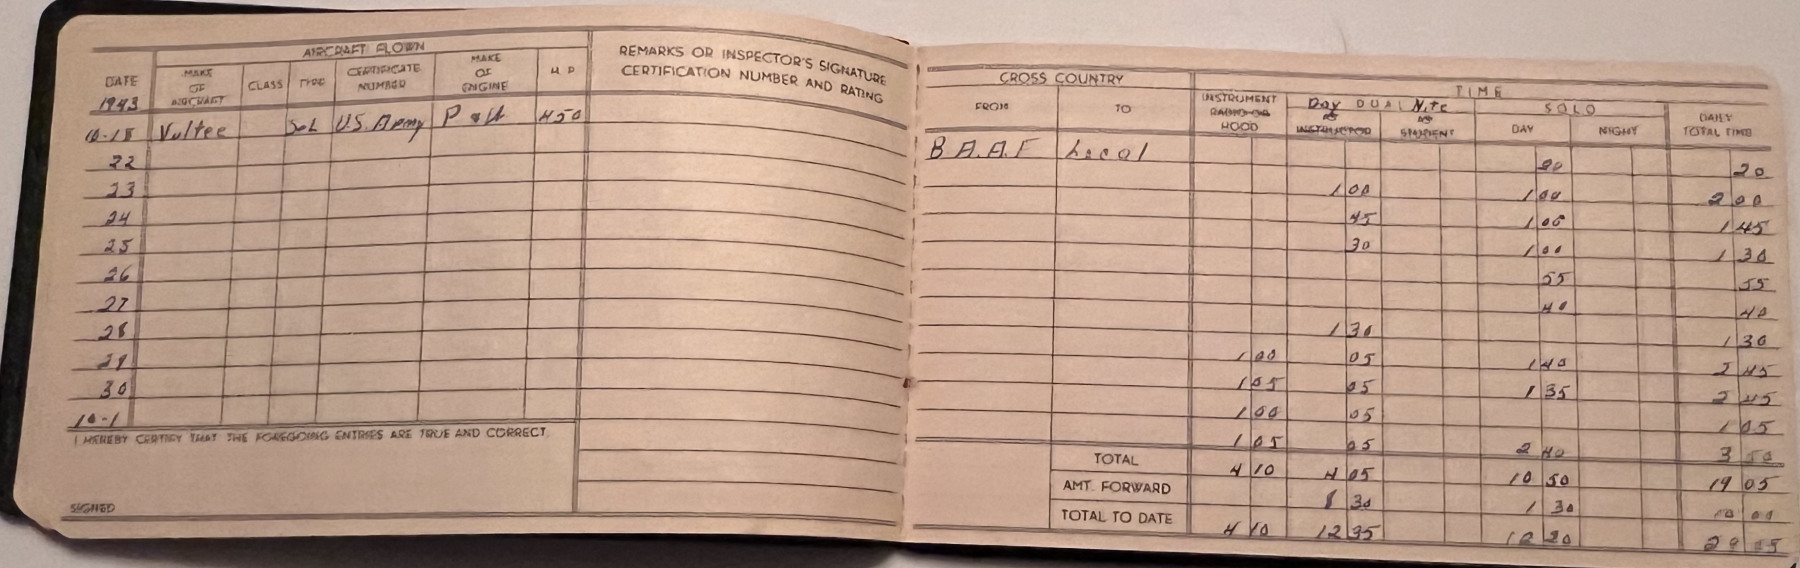 AIRCRAFT FLOWN
DATE MAKE OF AIRCRAFT CLASS TYPE CERTIFICATE NUMBER MAKE OF ENGINE H P REMARKS OR INSPECTOR'S SIGNATURE CERTIFICATION NUMBER AND RATING
1943
10-18 Vultee U.S. Army P & W 450
22
23
24
25
26
27
28
29
30
10-1
I HEREBY CERTIFY THAT THE FOREGOING ENTRIES ARE TRUE AND CORRECT.
SIGNED
CROSS COUNTRY TIME
FROM TO INSTRUMENT RADIO OR HOOD Day DUAL Nite SOLO DAILY TOTAL TIME
AS INSTRUCTOR AS STUDENT DAY NIGHT
B A.A.F Local 20 20
1 00 1 00 2 00
45 1 00 1 45
30 1 00 1 30
55 55
40 40
1 30 1 30
1 00 05 1 40 2 45
1 05 05 1 35 2 45
1 00 05 1 05
1 05 05 2 40 3 50
TOTAL 4 10 4 05 10 50 19 05
AMT. FORWARD 8 30 1 30 10 00
TOTAL TO DATE 4 10 12 35 12 20 29 05